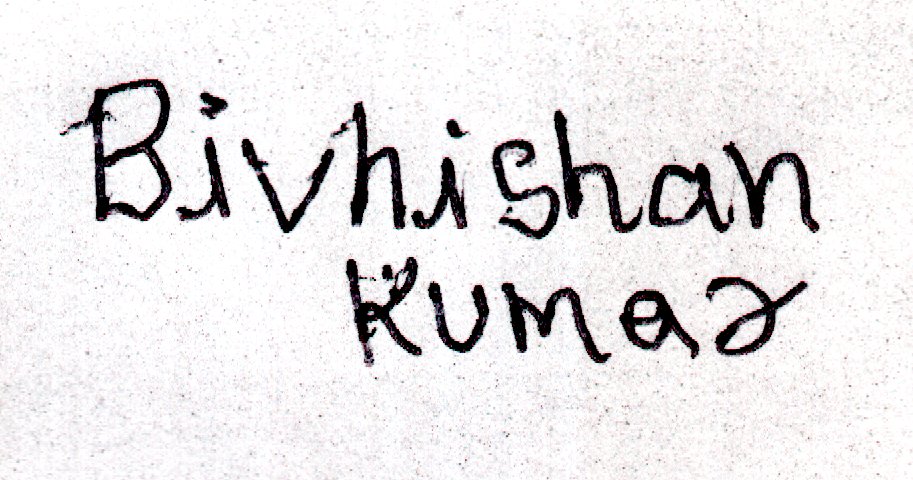 Bivhishan
Kumar